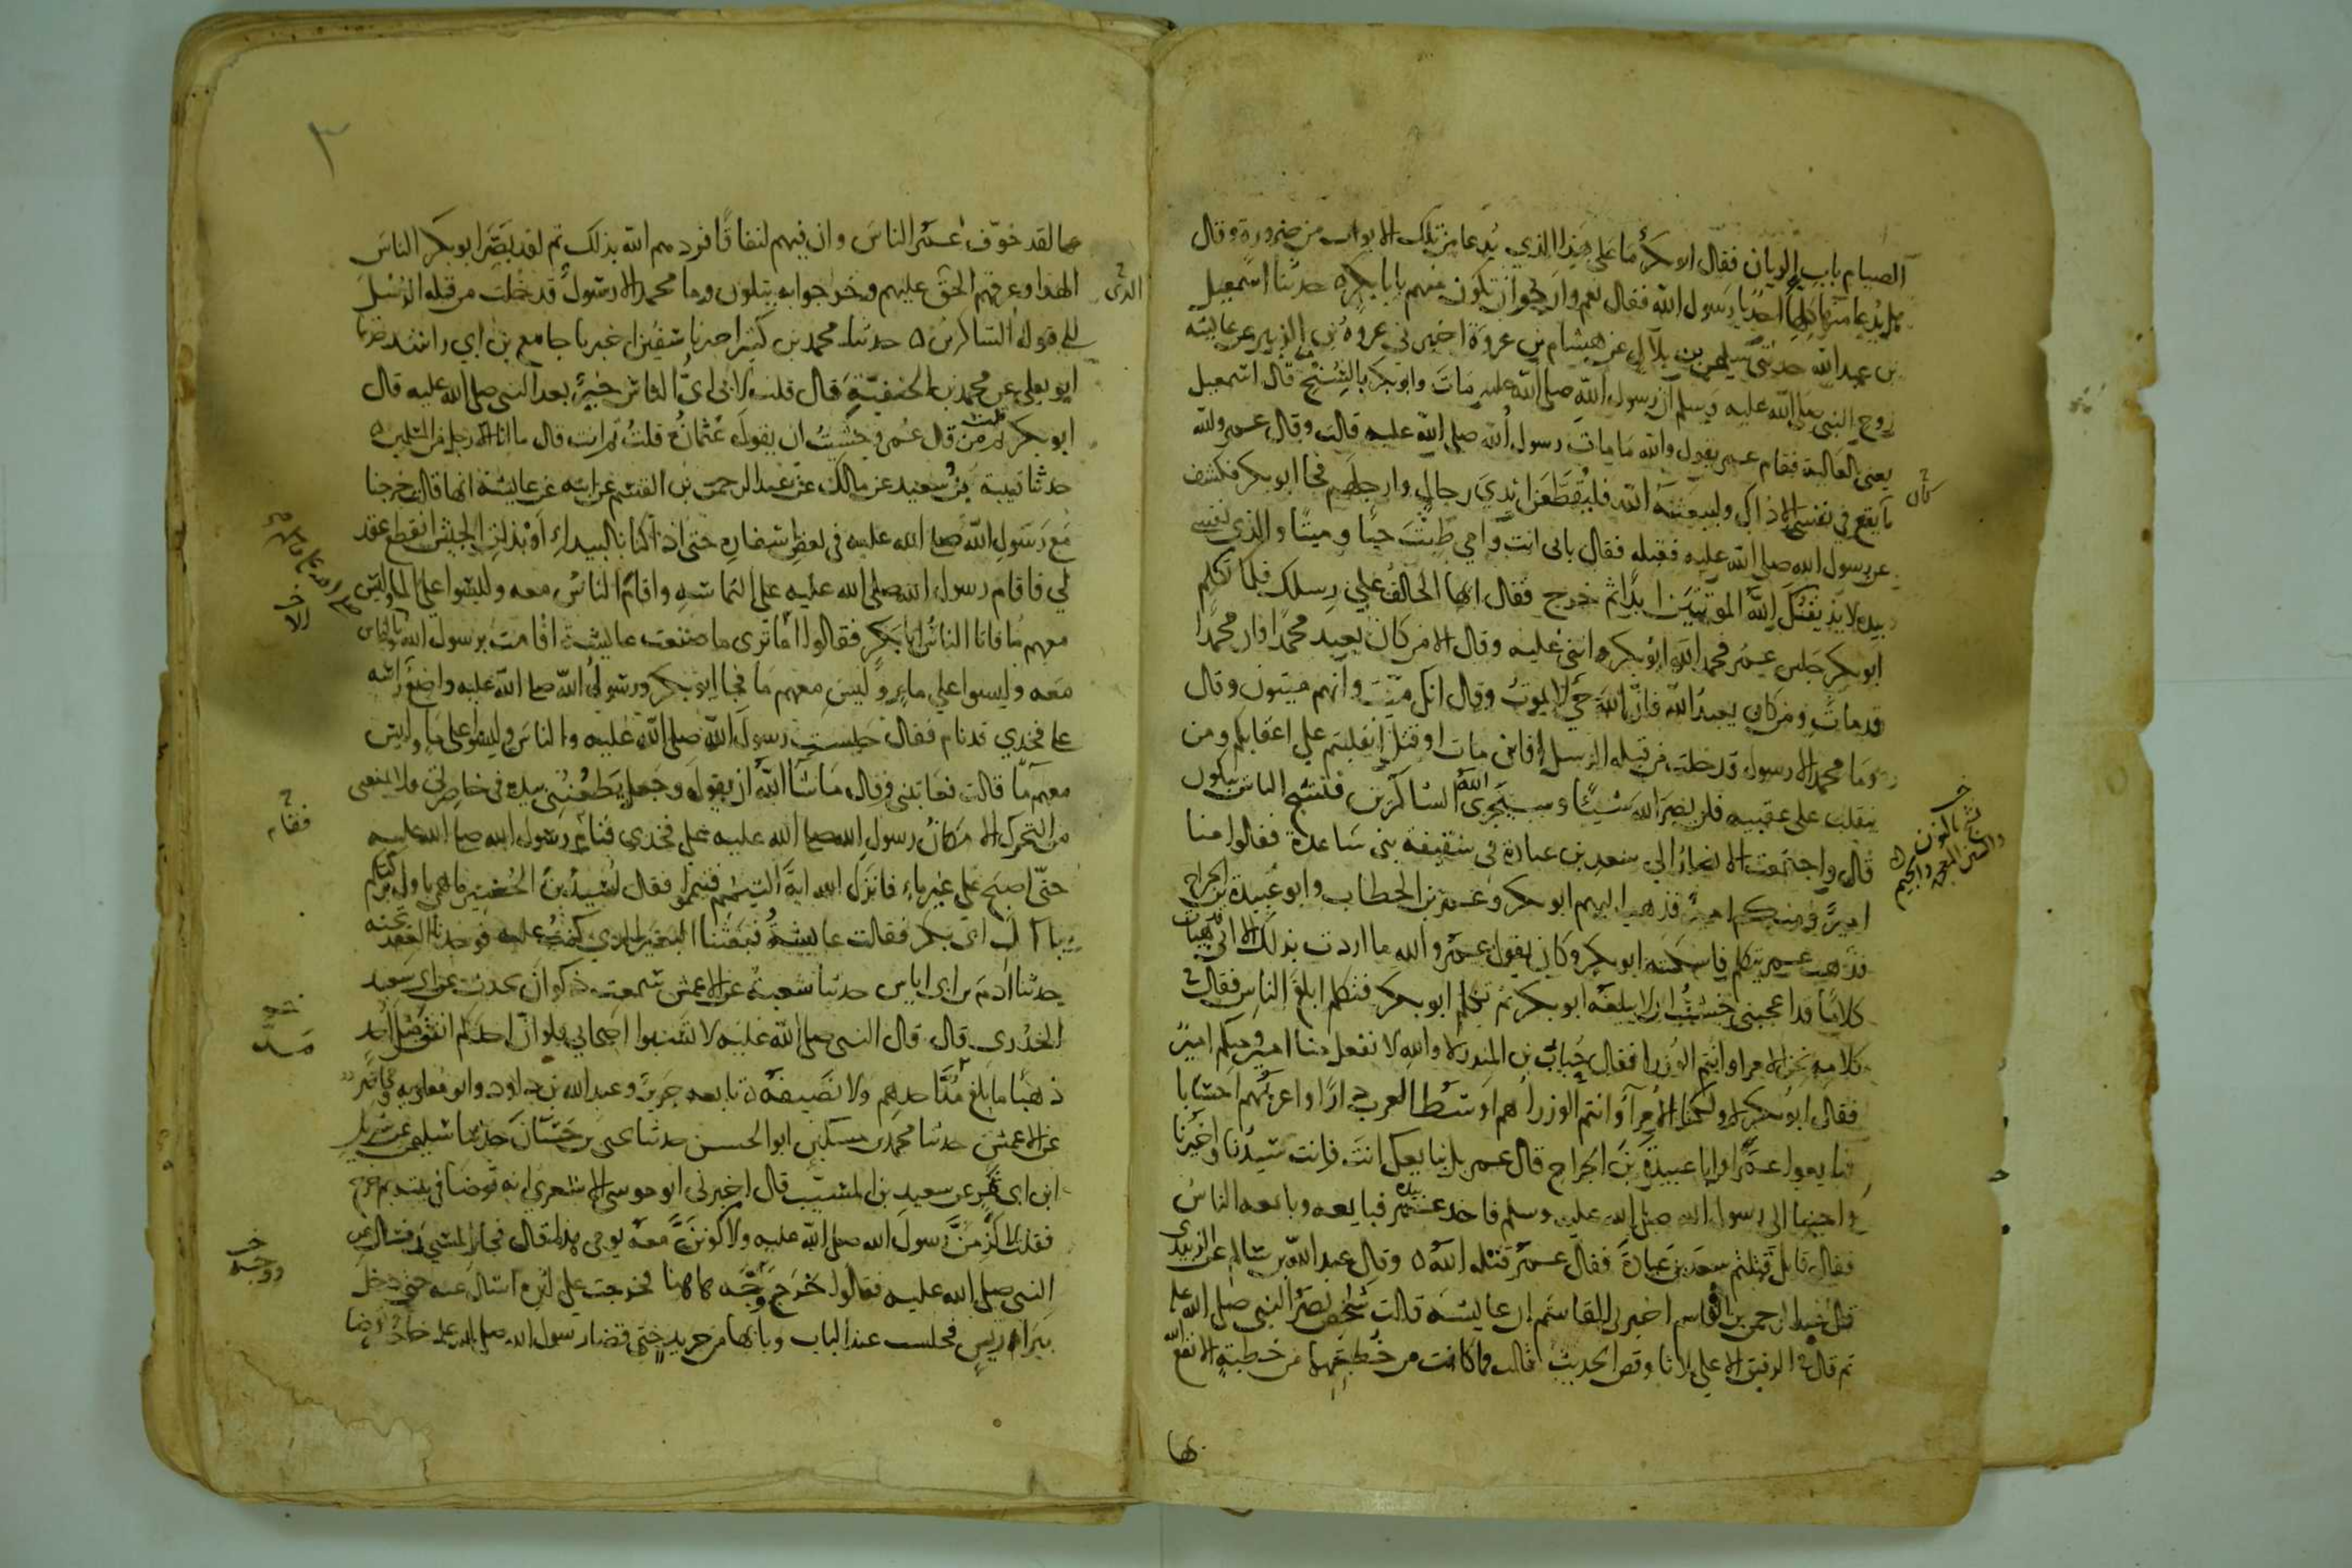 الصيام باب الريان فقال ابو بكر ما على هذا الذي يدعا من تلك الابواب من ضرورة وقال
هل يدعا منها كلها احد يا رسول الله فقال نعم وارجوا ان تكون منهم يابا بكر ٥ حدثنا اسمعيل
بن عبد الله حدثني سليمن بن بلال عن هشام بن عروة اخبرني عروة بن الزبير عن عايشة
زوج النبي صلى الله عليه وسلم ان رسول الله صلى الله عليه مات وابو بكر بالسنح قال اسمعيل
يعني العالية فقام عمر يقول والله ما مات رسول الله صلى الله عليه قالت وقال عمر والله
ما يقع في نفسي الا ذاك وليبعثنه الله فليقطعن ايدي رجال وارجلهم فجا ابو بكر فكشف
عن رسول الله صلى الله عليه فقبله فقال بابي انت وامي طبت حيا وميتا والذي نفسي
بيده لا يذيقنك الله الموتتين ابدا ثم خرج فقال ايها الحالف على رسلك فلما تكلم
ابو بكر جلس عمر فحمد الله ابو بكر واثنى عليه وقال الا من كان يعبد محمدا فان محمدا
قد مات ومن كان يعبد الله فان الله حي لا يموت وقال انك ميت وانهم ميتون وقال
وما محمد الا رسول قد خلت من قبله الرسل افاين مات او قتل انقلبتم على اعقابكم ومن
ينقلب على عقبيه فلن يضر الله شيئا وسيجزي الله الشاكرين فنشج الناس يبكون
قال واجتمعت الانصار الى سعد بن عبادة في سقيفة بني ساعدة فقالوا منا
امير ومنكم امير فذهب اليهم ابو بكر وعمر بن الخطاب وابو عبيدة بن الجراح
فذهب عمر يتكلم فاسكته ابو بكر وكان يقول عمر والله ما اردت بذلك الا اني قد هيات
كلاما قد اعجبني خشيت ان لا يبلغه ابو بكر ثم تكلم ابو بكر فتكلم ابلغ الناس فقال في
كلامه نحن الامرا وانتم الوزرا فقال حباب بن المنذر لا والله لا نفعل منا امير ومنكم امير
فقال ابو بكر لا ولكنا الامرآ وانتم الوزرا هم اوسط العرب دارا واعربهم احسابا
فبايعوا عمر او ابا عبيدة بن الجراح قال عمر بل نبايعك انت فانت سيدنا وخيرنا
واحبنا الى رسول الله صلى الله عليه وسلم فاخذ عمر بيده فبايعه وبايعه الناس
فقال قايل قتلتم سعد بن عبادة فقال عمر قتله الله ٥ وقال عبد الله بن سالم عن الزبيدي
قال عبد الرحمن بن القاسم اخبرني القاسم ان عايشة قالت شخص بصر النبي صلى الله عليه
ثم قال في الرفيق الاعلى ثلاثا وقص الحديث قالت فما كانت من خطبتهما من خطبة الا نفع
بها
كان
خ
فنشج بالنون
والشين المعجمة والجيم
٣
الله بها لقد خوف عمر الناس وان فيهم لنفاقا فردهم الله بذلك ثم لقد بصر ابو بكر الناس
الهدا وعرفهم الحق عليهم وخرجوا به يتلون وما محمد الا رسول قد خلت من قبله الرسل
الى قوله الشاكرين ٥ حدثنا محمد بن كثير اخبرنا سفين اخبرنا جامع بن ابي راشد حدثنا
ابو يعلى عن محمد بن الحنفية قال قلت لابي اي الناس خير بعد النبي صلى الله عليه قال
ابو بكر قلت ثم من قال عمر وخشيت ان يقول عثمان قلت ثم انت قال ما انا الا رجل من المسلمين ٥
حدثنا قتيبة بن سعيد عن مالك عن عبد الرحمن بن القسم عن ابيه عن عايشة انها قالت خرجنا
مع رسول الله صلى الله عليه في بعض اسفاره حتى اذا كنا بالبيداء او بذات الجيش انقطع عقد
لي فاقام رسول الله صلى الله عليه على التماسه واقام الناس معه وليسوا على ماء وليس
معهم ما فاتا الناس ابا بكر فقالوا اما ترى ما صنعت عايشة اقامت برسول الله وبالناس
معه وليسوا على ماء وليس معهم ما فجا ابو بكر ورسول الله صلى الله عليه واضع راسه
على فخذي قد نام فقال حبست رسول الله صلى الله عليه والناس وليسوا على ما وليس
معهم ما قالت فعاتبني وقال ما شا الله ان يقول وجعل يطعنني بيده في خاصرتي فلا يمنعني
من التحرك الا مكان رسول الله صلى الله عليه على فخذي فنام رسول الله صلى الله عليه
حتى اصبح على غير ماء فانزل الله اية التيمم فتيمموا فقال اسيد بن الحضير ما هي باول بركتكم
يا آل ابي بكر فقالت عايشة فبعثنا البعير الذي كنت عليه فوجدنا العقد تحته
حدثنا ادم بن ابي اياس حدثنا شعبة عن الاعمش سمعت ذكوان يحدث عن ابي سعيد
الخدري قال قال النبي صلى الله عليه لا تسبوا اصحابي فلو ان احدكم انفق مثل احد
ذهبا ما بلغ مد احدهم ولا نصيفه تابعه جرير وعبد الله بن داود وابو معاوية ومحاضر
عن الاعمش حدثنا محمد بن مسكين ابو الحسن حدثنا يحيى بن حسان حدثنا سليمن عن شريك
ابن ابي نمر عن سعيد بن المسيب قال اخبرني ابو موسى الاشعري انه توضا في بيته ثم خرج
فقلت لالزمن رسول الله صلى الله عليه ولاكونن معه يومي هذا قال فجا المسجد فسال عن
النبي صلى الله عليه فقالوا خرج ووجه هاهنا فخرجت على اثره اسال عنه حتى دخل
بير اريس فجلست عند الباب وبابها من جريد حتى قضا رسول الله صلى الله عليه حاجته فتوضا
الذي
فقام
مد
خ
ووجه